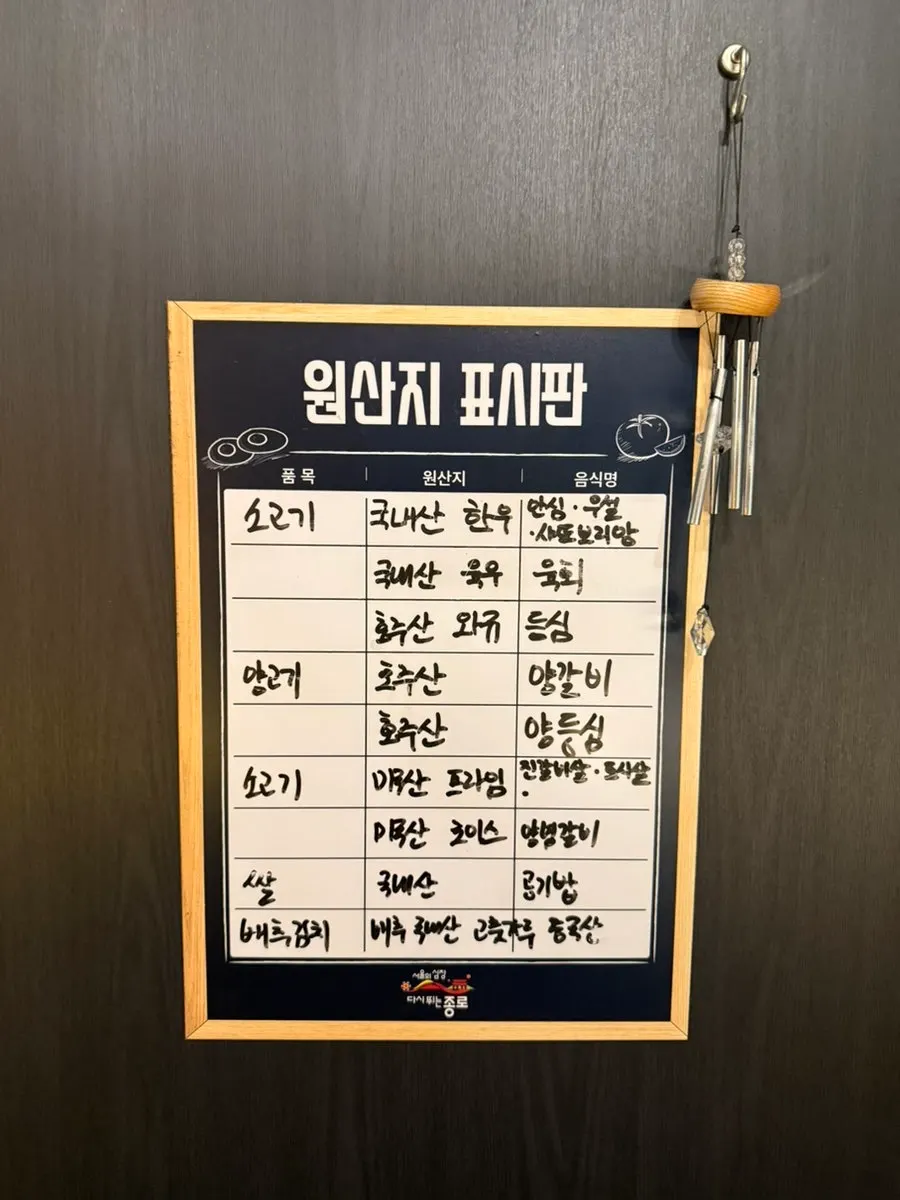 원산지 표시판
품목 원산지 음식명
소고기 국내산 한우 안심·우설
·샤또브리앙
국내산 육우 육회
호주산 와규 등심
양고기 호주산 양갈비
호주산 양등심
소고기 미국산 프라임 진갈비살·토시살
미국산 초이스 양념갈비
쌀 국내산 공기밥
배추김치 배추 국내산 고춧가루 중국산
서울의 심장,
다시 뛰는 종로